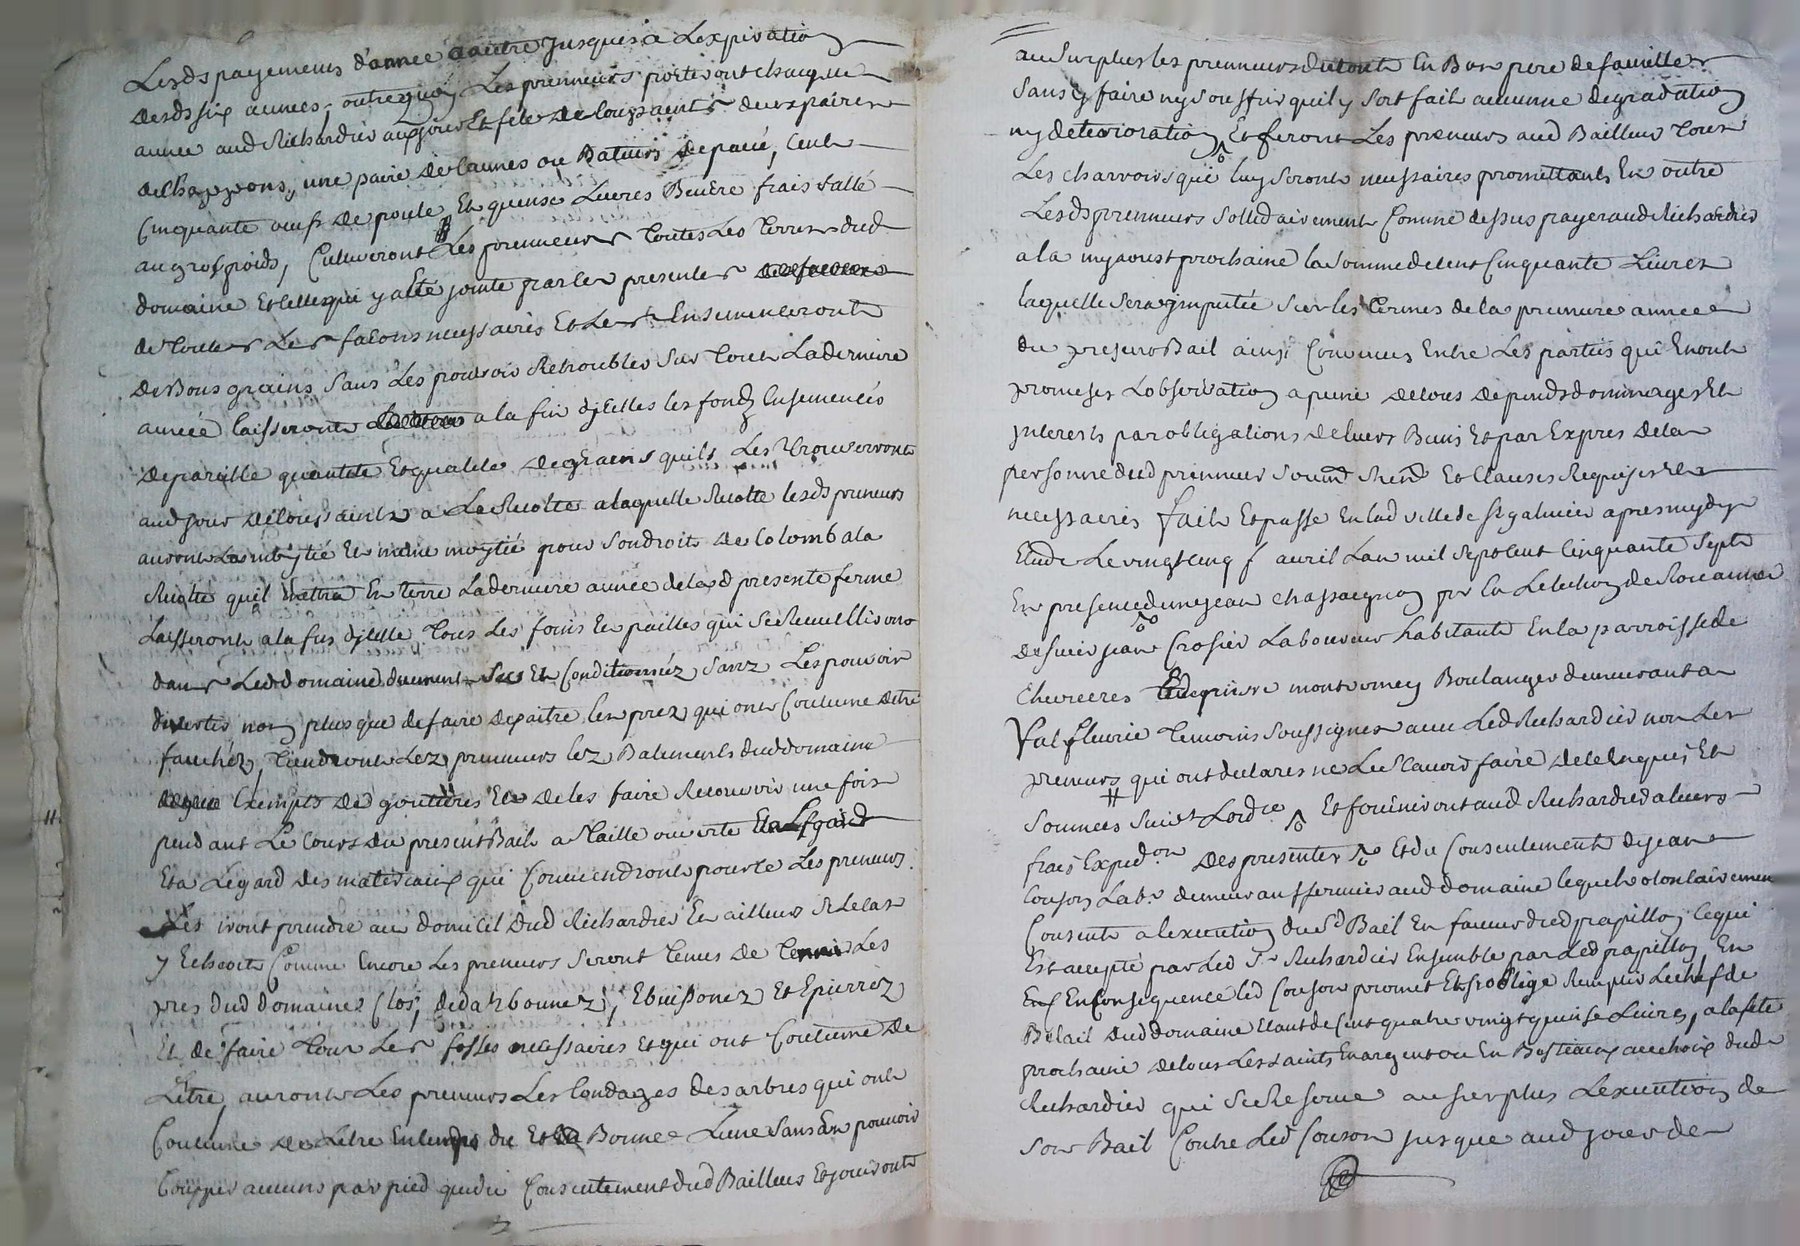 Lesds payements d'annee a autre jusques a Lexpiration
desds six années, outre quoy Les prenneurs porteront chaque
année aud Richardier au jour Et fete de toussaints deux paires
de Chappons, une paire de Cannes ou Batiers de paué, Cent
Cinquante oeufs de poule Et quinse Livres Beuere frais sallé
au gros poids, Cultiveront Les prenneurs toutes Les terres dud
domaine Et celles qui y a été jointe par les presentes
de toutes Les facons necessaires Et Les Ensemenceront
de Bons grains sans Les pouvoir Retroubler Sur tout La derniere
année laisseront a la fin d'jcelles les fondz Ensemencés
de pareille quantité Et qualité de grains quils Les trouveront
aud jour de toussaints a La Recolte a laquelle Recolte lesds preneurs
auront La moytié Et meme moytié pour Son droit de Colomb a la
Recolte quil Mettra En terre La derniere année de lad presente ferme
Laisseront a la fin d'jcelle tous Les foins Et pailles qui Se Recuelliront
dans Led domaine duement Secs Et Conditionnéz Sanz Les pouvoir
divertir non plus que de faire depaitre les prez qui ont Coutume detre
fauchéz, tiendront Lez preneurs lez Batiments dud domaine
Exempts de goutieres Et de les faire Recouvrir une fois
pendant Le Cours du present Bail a taille ouverte
Et a Légard des materiaux qui Conviendront pour ce Les preneurs
Les iront prendre au domicil dud Richardier Et ailleurs Si Le cas
y Echoit Comme Encore Les preneurs Seront tenus de tenir Les
prez dud domaine Clos, dedarbonnez, Ebuissonez Et Epierréz
Et de faire tour Les fosses necessaires Et qui ont Coutume de
L'etre, auront Les preneurs Les tondages des arbres qui ont
Coutume de Letre En temps du Et Bonne Lune Sans En pouvoir
Coupper aucuns par pied que du Consentement dud Bailleur Et jouiront
au Surplus les prenneurs du tout En Bon pere de famille
Sans y faire ny Souffrir quil y Soit fait aucunne degradation
ny deterioration Et feront Les preneurs aud Bailleur tous
Les charrois qui luy Seront necessaires promettants En outre
Lesds prenneurs Sollidairement Comme dessus payer aud Richardier
a la my aoust prochaine la Somme de Cent Cinquante Livres
laquelle Sera jmputée Sur les termes de la premiere année
du present Bail ainsi Convenus Entre Les parties qui En ont
promeses Lobservation a peine de tous depends dommages Et
jnterests par obligations de leurs Biens Et par Expres de la
personne dud prenneur Soumd Rend Et Clauses Requises Et
necessaires fait Et passe En lad ville de St galmier apres mydy
Etude Le vingt cinq avril Lan mil Sept Cent Cinquante Sept
En presence de jean chassaignon pr En Lelection de Roanne
de Sieur jean Crosier Laboureur habitant En la parroisse de
Chevrieres montorney Boulanger demeurant a
Valfleurie temoins Soussignes avec Led Richardier non Les
preneurs qui ont declares ne Le Scavoir faire de ce Enquis Et
Sommés Suivt Lordce Et fourniront aud Richardier a leurs
frais Expedon des presentes Et du Consentement de jean
Couson Labr demeurant fermier aud domaine lequel volontairement
Consent a lexecution du Sd Bail En faveur dud papillon, Ce qui
Est accepté par Led Sr Richardier Ensemble par Led papillon En
En Consequence led Couson promet Et Soblige Remplir Le chef de
Bétail dud domaine Etant de Cent quatre vingt quinse Livres, a la fete
prochaine de tous Les saints En argent ou En Bestiaux au choix dud
Richardier qui Se Reserve au surplus Lexecution de
Son Bail Contre Led Couson jusque aud jour de